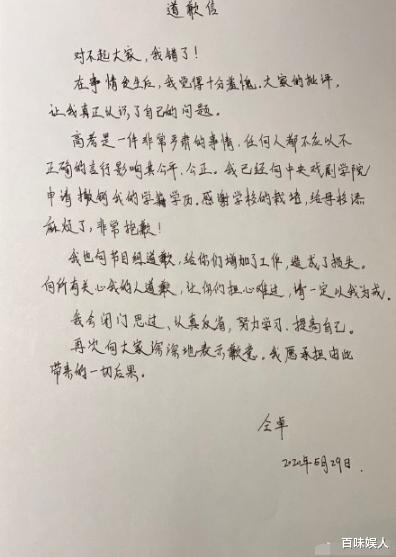 道歉信
对不起大家，我错了！
在事情发生后，我觉得十分羞愧。大家的批评，
让我真正认识了自己的问题。
高考是一件非常严肃的事情，任何人都不应以不
正确的言行影响其公平、公正。我已经向中央戏剧学院
申请撤销我的学籍学历。感谢学校的栽培，给母校添
麻烦了，非常抱歉！
我也向节目组道歉，给你们增加了工作，造成了损失。
向所有关心我的人道歉，让你们担心难过，请一定以我为戒。
我会闭门思过、认真反省，努力学习、提高自己。
再次向大家深深地表示歉意。我愿承担由此
带来的一切后果。
仝卓
2020年5月29日.
百味娱人